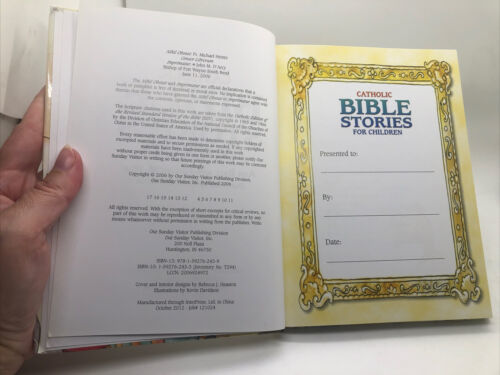 Nihil Obstat: Fr. Michael Heintz
Censor Librorum
Imprimatur: ✠ John M. D'Arcy
Bishop of Fort Wayne-South Bend
June 11, 2006
The Nihil Obstat and Imprimatur are official declarations that a
book or pamphlet is free of doctrinal or moral error. No implication is contained
therein that those who have granted the Nihil Obstat or Imprimatur agree with
the contents, opinions, or statements expressed.
The Scripture citations used in this work are taken from the Catholic Edition of
the Revised Standard Version of the Bible (RSV), copyright © 1965 and 1966
by the Division of Christian Education of the National Council of the Churches of
Christ in the United States of America. Used by permission. All rights reserved.
Every reasonable effort has been made to determine copyright holders of
excerpted materials and to secure permissions as needed. If any copyrighted
materials have been inadvertently used in this work
without proper credit being given in one form or another, please notify Our
Sunday Visitor in writing so that future printings of this work may be corrected
accordingly.
Copyright © 2006 by Our Sunday Visitor Publishing Division,
Our Sunday Visitor, Inc. Published 2006
17 16 15 14 13 12 4 5 6 7 8 9 10 11
All rights reserved. With the exception of short excerpts for critical reviews, no
part of this work may be reproduced or transmitted in any form or by any
means whatsoever without permission in writing from the publisher. Write:
Our Sunday Visitor Publishing Division
Our Sunday Visitor, Inc.
200 Noll Plaza
Huntington, IN 46750
Cover and interior designs by Rebecca J. Heaston
Illustrations by Kevin Davidson
Manufactured through InterPress, Ltd. in China
October 2012
CATHOLIC
BIBLE
STORIES
FOR CHILDREN
Presented to:
By:
Date: